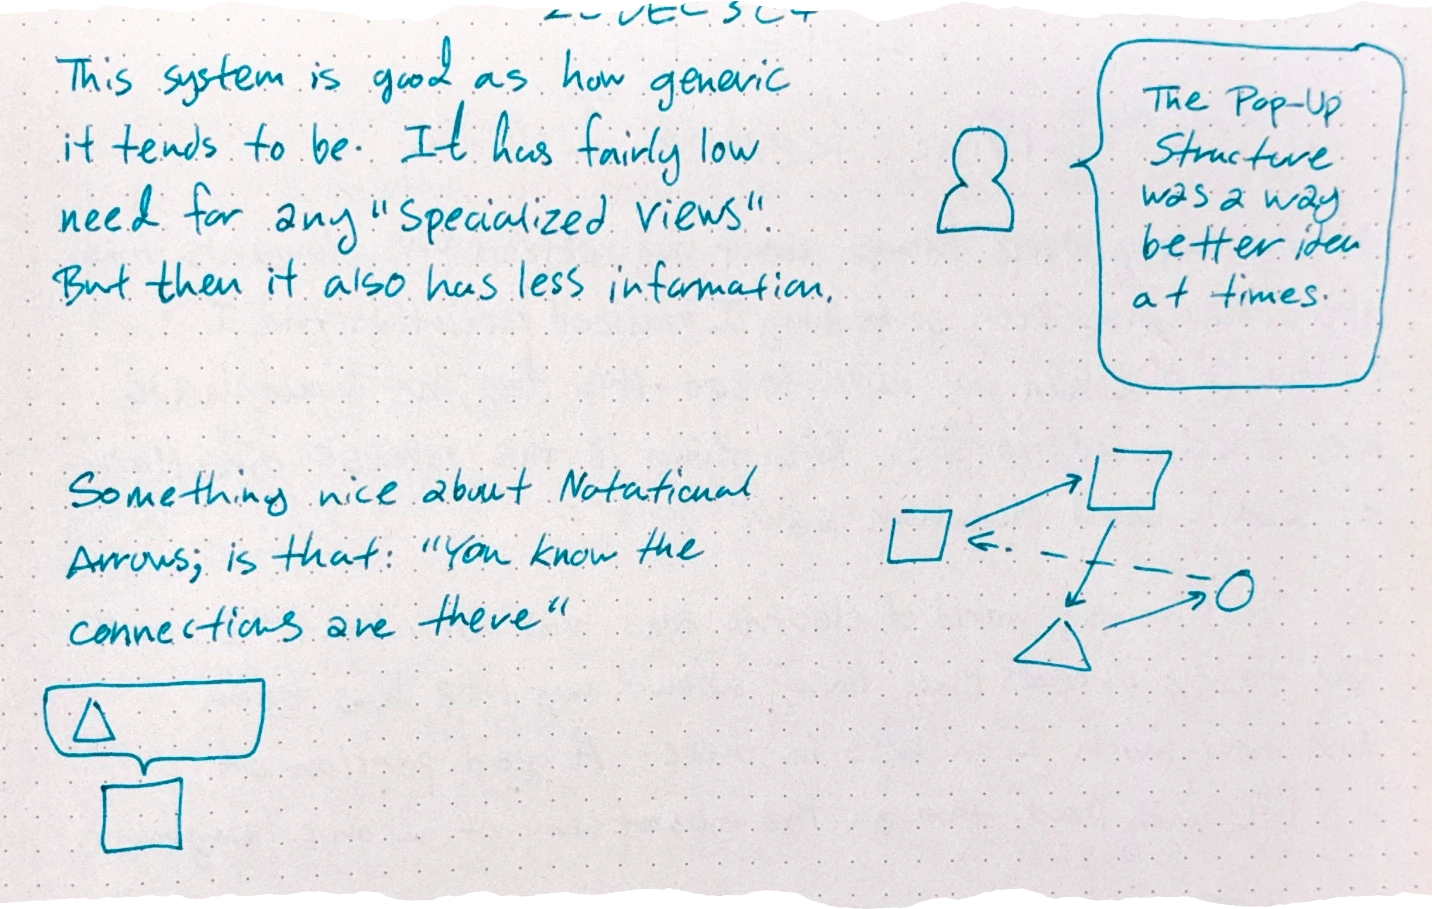 This system is good as how generic
it tends to be. It has fairly low
need for any "Specialized views".
But then it also has less information.
The Pop-Up
Structure
was a way
better idea
at times.
Something nice about Notational
Arrows; is that: "You know the
connections are there"